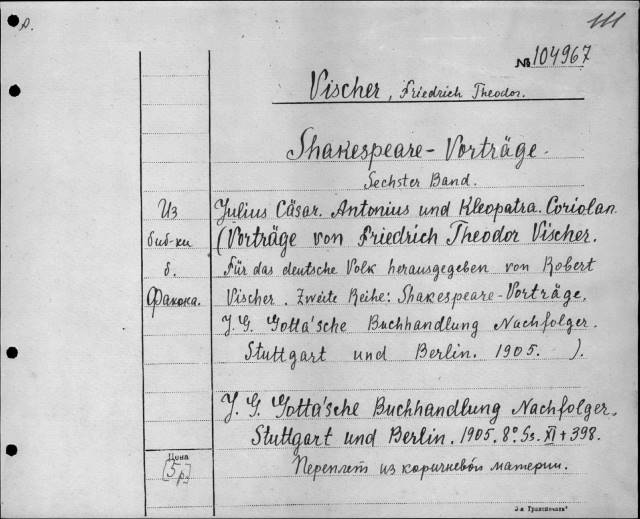 № 104967
Vischer, Friedrich Theodor.
Shakespeare-Vorträge.
Sechster Band.
Из Julius Cäsar. Antonius und Kleopatra. Coriolan.
биб-ки (Vorträge von Friedrich Theodor Vischer.
б. Für das deutsche Volk herausgegeben von Robert
Vischer. Zweite Reihe: Shakespeare-Vorträge.
J. G. Cotta'sche Buchhandlung Nachfolger.
Stuttgart und Berlin. 1905. ).
J. G. Cotta'sche Buchhandlung Nachfolger.
Stuttgart und Berlin. 1905. 8°. Ss. XI + 398.
Цена
[5 р.] Переплет из коричневой материи.